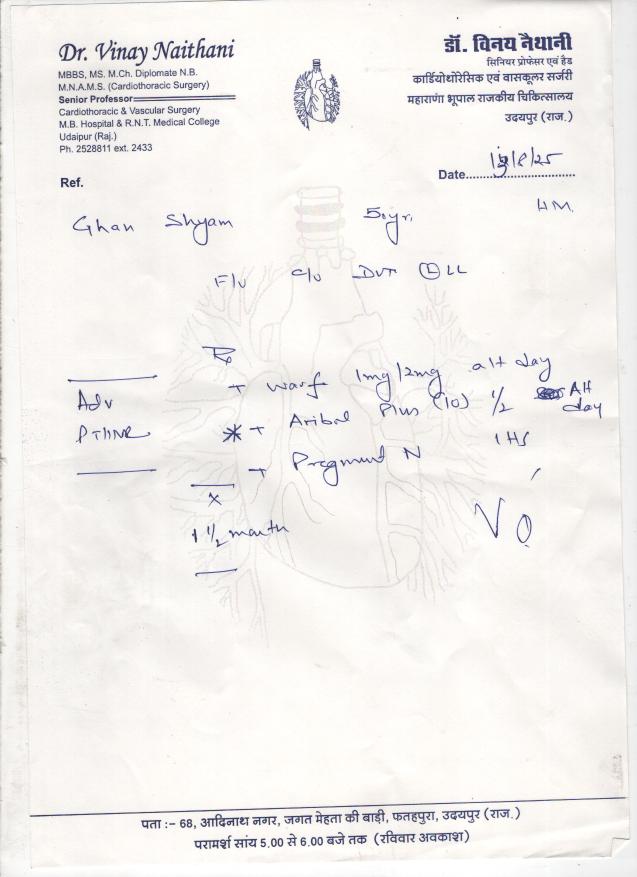 Dr. Vinay Naithani
MBBS, MS. M.Ch. Diplomate N.B.
M.N.A.M.S. (Cardiothoracic Surgery)
Senior Professor
Cardiothoracic & Vascular Surgery
M.B. Hospital & R.N.T. Medical College
Udaipur (Raj.)
Ph. 2528811 ext. 2433
डॉ. विनय नैथानी
सिनियर प्रोफेसर एवं हैड
कार्डियोथोरेसिक एवं वासकूलर सर्जरी
महाराणा भूपाल राजकीय चिकित्सालय
उदयपुर (राज.)
Ref.
Date
Ghan Shyam 50yr.
F/U C/U DVT Ⓛ LL
Rx
+ Warf 1mg/2mg alt day
Adv
* + Plus (10) 1/2 Alt day
PT INR
+ N 1HS
x
1 1/2 month
पता :– 68, आदिनाथ नगर, जगत मेहता की बाड़ी, फतहपुरा, उदयपुर (राज.)
परामर्श सांय 5.00 से 6.00 बजे तक (रविवार अवकाश)